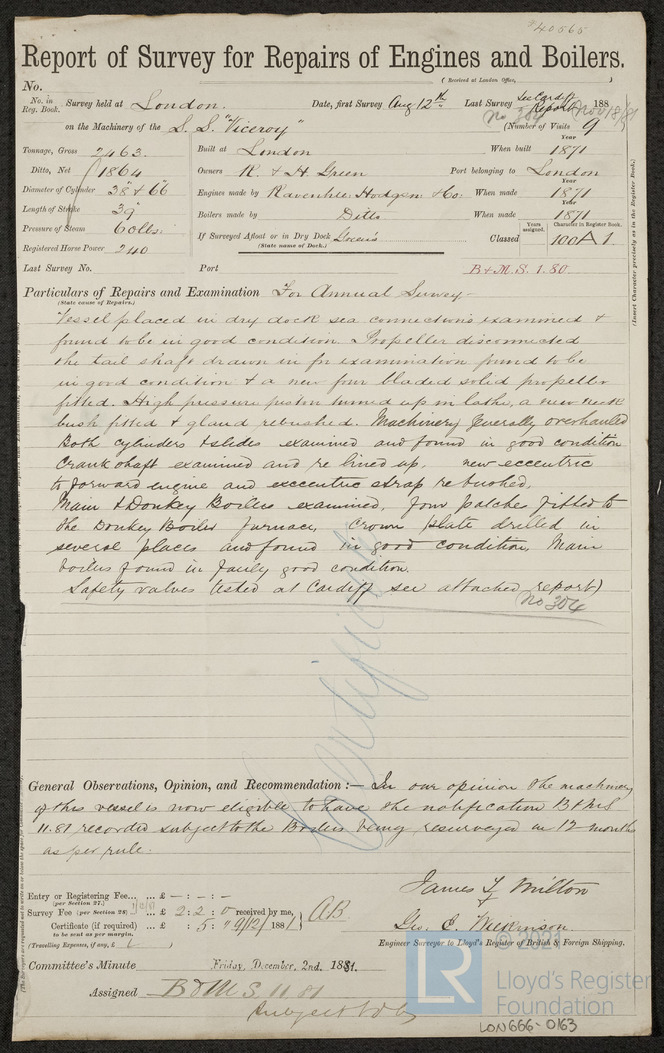 *40565
Report of Survey for Repairs of Engines and Boilers.
(Received at London Office, )
No.
No. in Reg. Book. Survey held at London. Date, first Survey Aug 12th Last Survey See Cardiff Report No 304 1881 Nov 18/81
on the Machinery of the S.S. "Viceroy" (Number of Visits 9
Tonnage, Gross 2463.
Ditto, Net 1864
Diameter of Cylinder 38" & 66"
Length of Stroke 39"
Pressure of Steam 60 lbs.
Registered Horse Power 240
Built at London When built Year 1871
Owners R. & H Green Port belonging to London
Engines made by Ravenhill Hodgson & Co. When made Year 1871
Boilers made by Ditto When made Year 1871
If Surveyed Afloat or in Dry Dock Green's
(State name of Dock.)
Classed Years assigned. Character in Register Book. 100 A 1
(Insert Character precisely as in the Register Book.)
Last Survey No. Port B & M. S. 1.80
Particulars of Repairs and Examination For Annual Survey -
(State cause of Repairs.)
Vessel placed in dry dock sea connections examined &
found to be in good condition. Propeller disconnected
the tail shaft drawn in for examination found to be
in good condition & a new four bladed solid propeller
fitted. High pressure piston turned up in lathe, a new neck
bush fitted & gland rebushed. Machinery Generally overhauled
Both cylinders & slides examined and found in good condition
Crank shaft examined and re lined up, new eccentric
to forward engine and exccentric strap rebushed,
Main & Donkey Boilers examined, four patches fitted to
the Donkey Boiler furnace, Crown plate drilled in
several places and found in good condition, Main
boilers found in fairly good condition.
Safety valves tested at Cardiff see attached report)
No 304
Certificate
General Observations, Opinion, and Recommendation :— In our opinion the machinery
of this vessel is now eligible to have the notification B & M S
11.81 recorded subject to the Boilers being resurveyed in 12 months
as per rule.
Entry or Registering Fee... ... £ - : - : -
(per Section 27.)
Survey Fee (per Section 28) ... £ 2 : 2 : 0 received by me,
Certificate (if required) ... £ : 5 : " 9/12/ 1881
to be sent as per margin.
(Travelling Expenses, if any, £ )
AB
James T Milton
&
Geo. E. Wilkinson
Engineer Surveyor to Lloyd's Register of British & Foreign Shipping.
Committee's Minute Friday, December, 2nd. 1881.
Assigned B & M S 11 81
LR
© 2021
Lloyd's Register
Foundation
LON666-0163